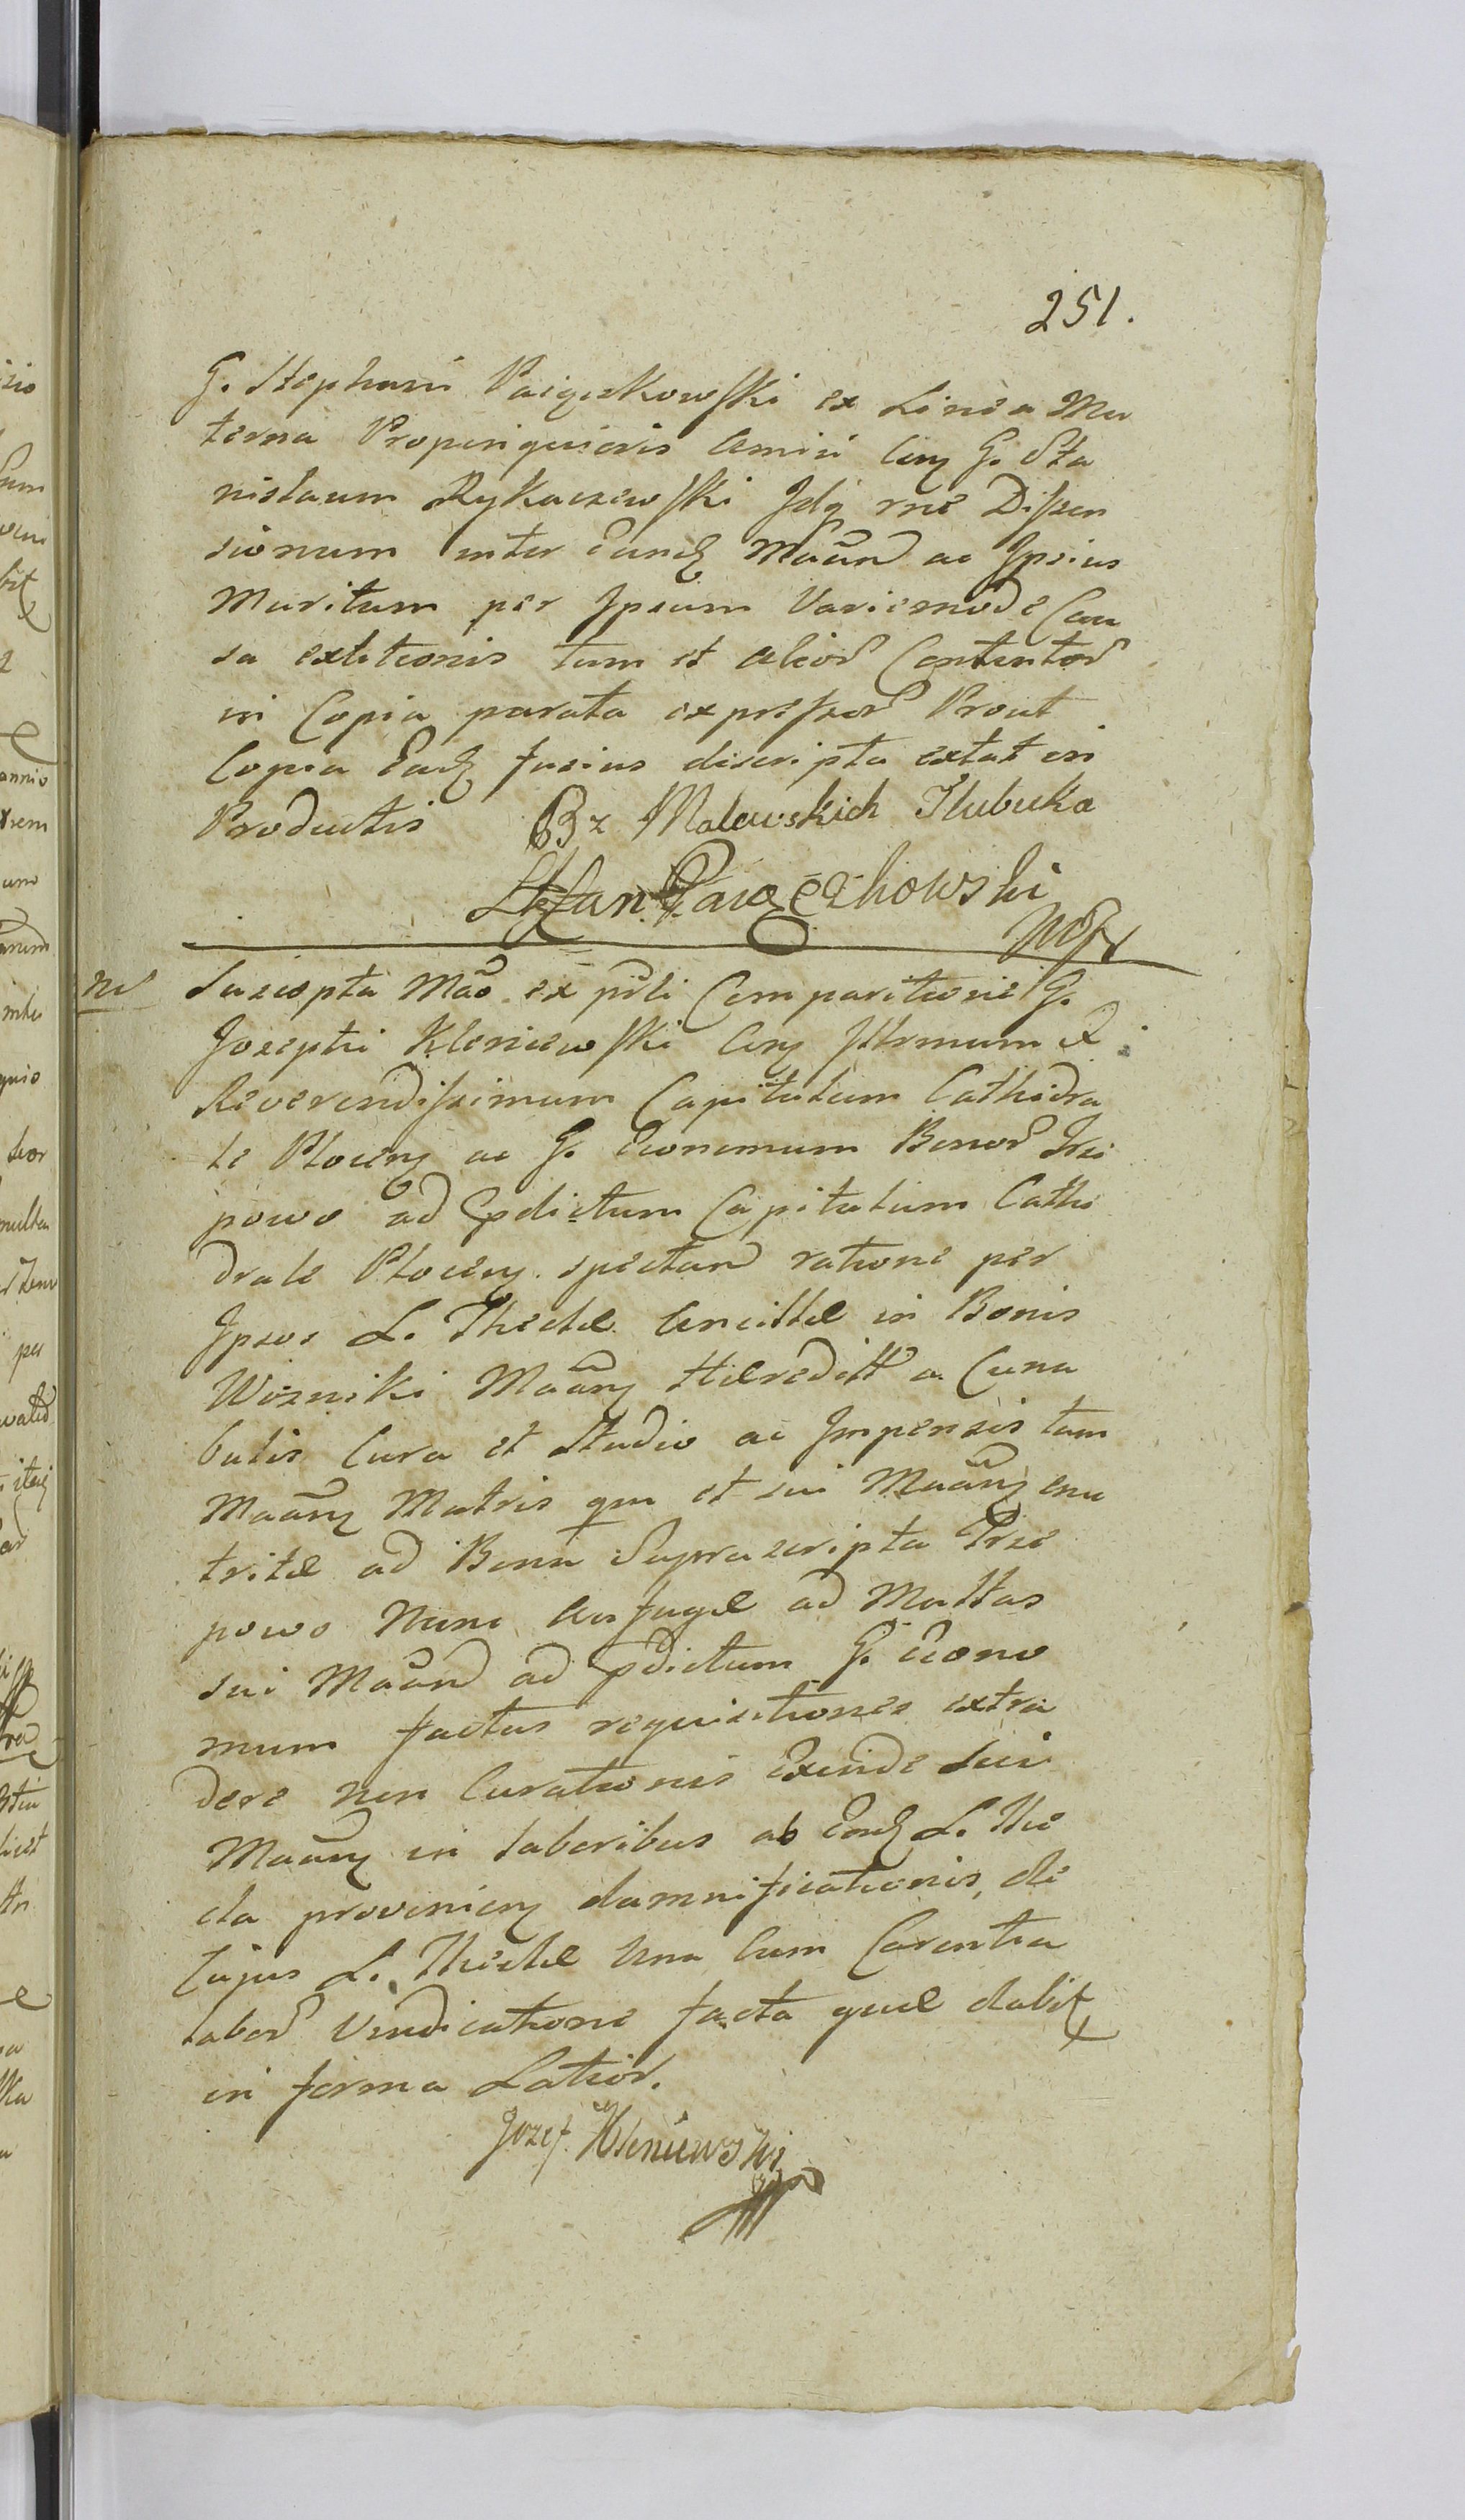 251.
G. Stephani Paięczkowski ex Linea Ma
terna Propinquioris Amici Cirq G. Sta
nislaum Rykaczewski Idq rne Dissen
sionum inter Eandz Maãnd ac Ipsius
Maritum per Ipsum Variemode Cau
sa extitionis tum et alior Contentor
in Copia parata expressor Prout
Copia Eadz fusius discripta extat in
Productis B z Malewskich Hubicka
Stefan Paięczkowski
mp
Suscepta Mão ex psli Comparitione G.
Josephi Kleniewski Cirq Illrmum &
Reverendissimum Capitulum Cathedra
le Plocenz ac G. Economum Bonor Trze
powo ad pdictum Capitulum Cathe
drale Plocenz spectand ratione per
Ipsos L. Theclæ Ancillæ in Bonis
Wozniki Maãnz Hæreditt a Cuna
bulis Cura et Studio ac Impensis tam
Maãnz Matris qm et sui Maãnz enu
tritæ ad Bona Suprascripta Trze
powo Nunc Aufugæ ad Multas
sui Maãnd ad pdictum G. Econo
mum factas requisitiones extra
dere non Curationis Exinde sui
Maãnz in laboribus ab Eadz L. The
cla provenienz damnificationis, de
Cujus L. Theclæ Una Cum Carentia
labor Vindicatione facta quæ dabitx
in forma Latior.
Jozef Kleniewski
mp